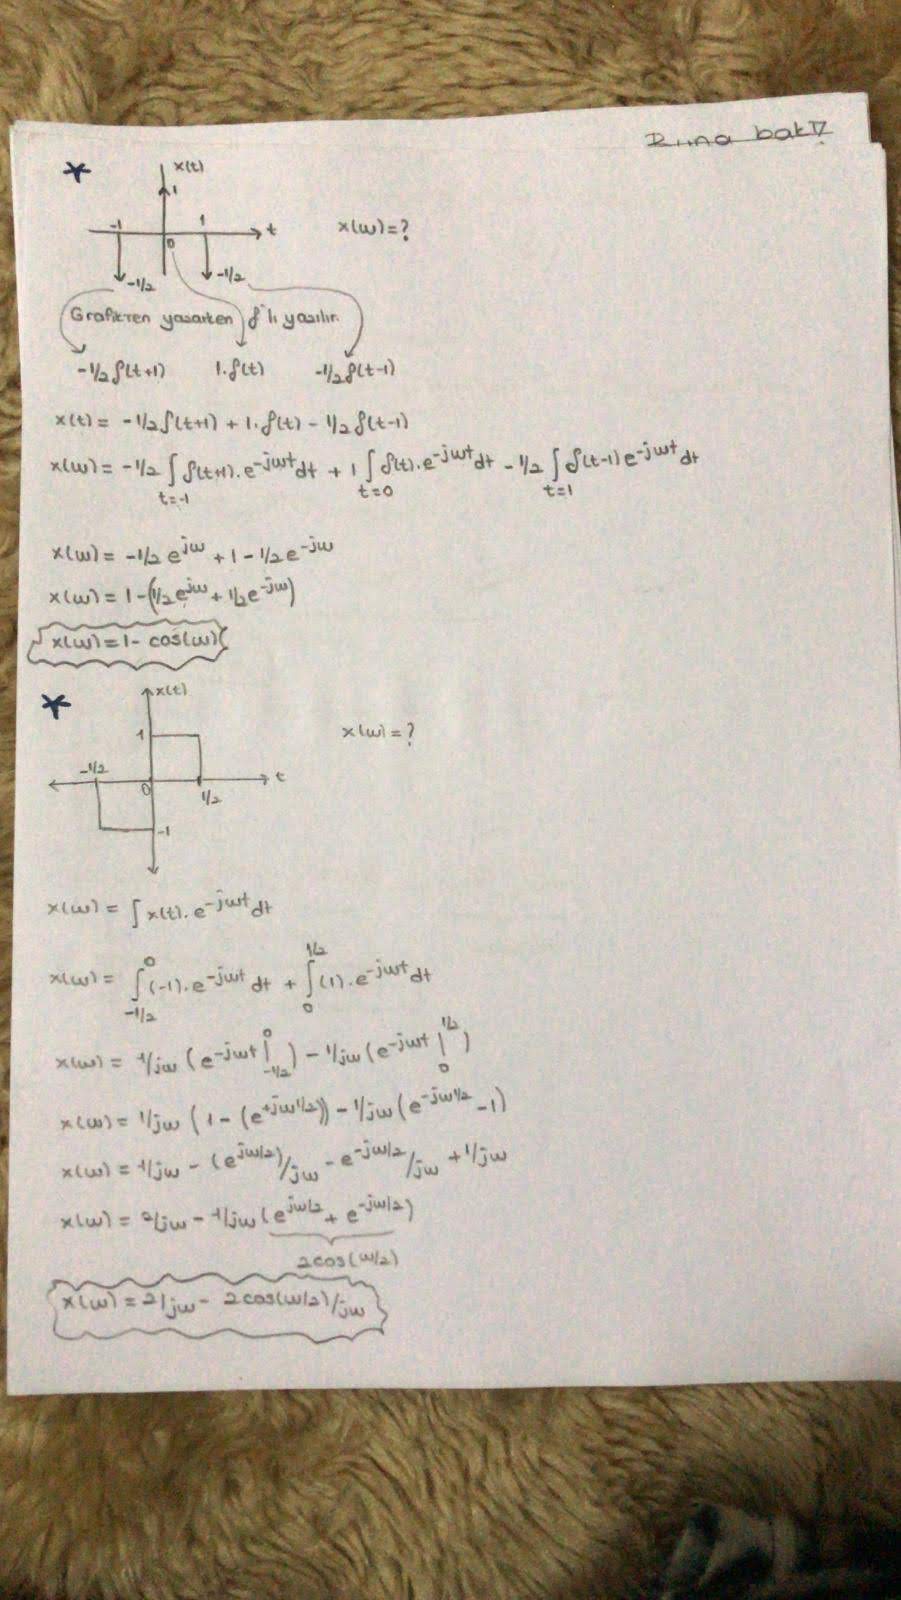 bak
x(t)
1
-1 1 t x(w)=?
0
-1/2 -1/2
Grafikten yazarken δ'lı yazılır.
-1/2 δ(t+1) 1.δ(t) -1/2 δ(t-1)
x(t) = -1/2 δ(t+1) + 1.δ(t) - 1/2 δ(t-1)
x(w) = -1/2 ∫ δ(t+1).e^-jwt dt + 1 ∫ δ(t).e^-jwt dt - 1/2 ∫ δ(t-1) e^-jwt dt
t=-1 t=0 t=1
x(w) = -1/2 e^jw + 1 - 1/2 e^-jw
x(w) = 1 - (1/2 e^jw + 1/2 e^-jw)
x(w) = 1 - cos(w)
x(t)
1 x(w) = ?
-1/2 t
0 1/2
-1
x(w) = ∫ x(t).e^-jwt dt
0 1/2
x(w) = ∫ (-1).e^-jwt dt + ∫ (1).e^-jwt dt
-1/2 0
0 1/2
x(w) = 1/jw (e^-jwt | ) - 1/jw (e^-jwt | )
-1/2 0
x(w) = 1/jw (1 - (e^+jw1/2)) - 1/jw (e^-jw1/2 - 1)
x(w) = 1/jw - (e^jw/2)/jw - e^-jw/2/jw + 1/jw
x(w) = 2/jw - 1/jw (e^jw/2 + e^-jw/2)
2cos(w/2)
x(w) = 2/jw - 2cos(w/2)/jw